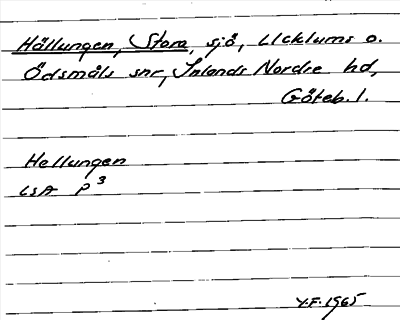 Hällungen, Stora, sjö, Ucklums o.
Ödsmåls snr, Inlands Nordre hd,
Göteb. l.
Hellungen
LSA P³
Y.F. 1965